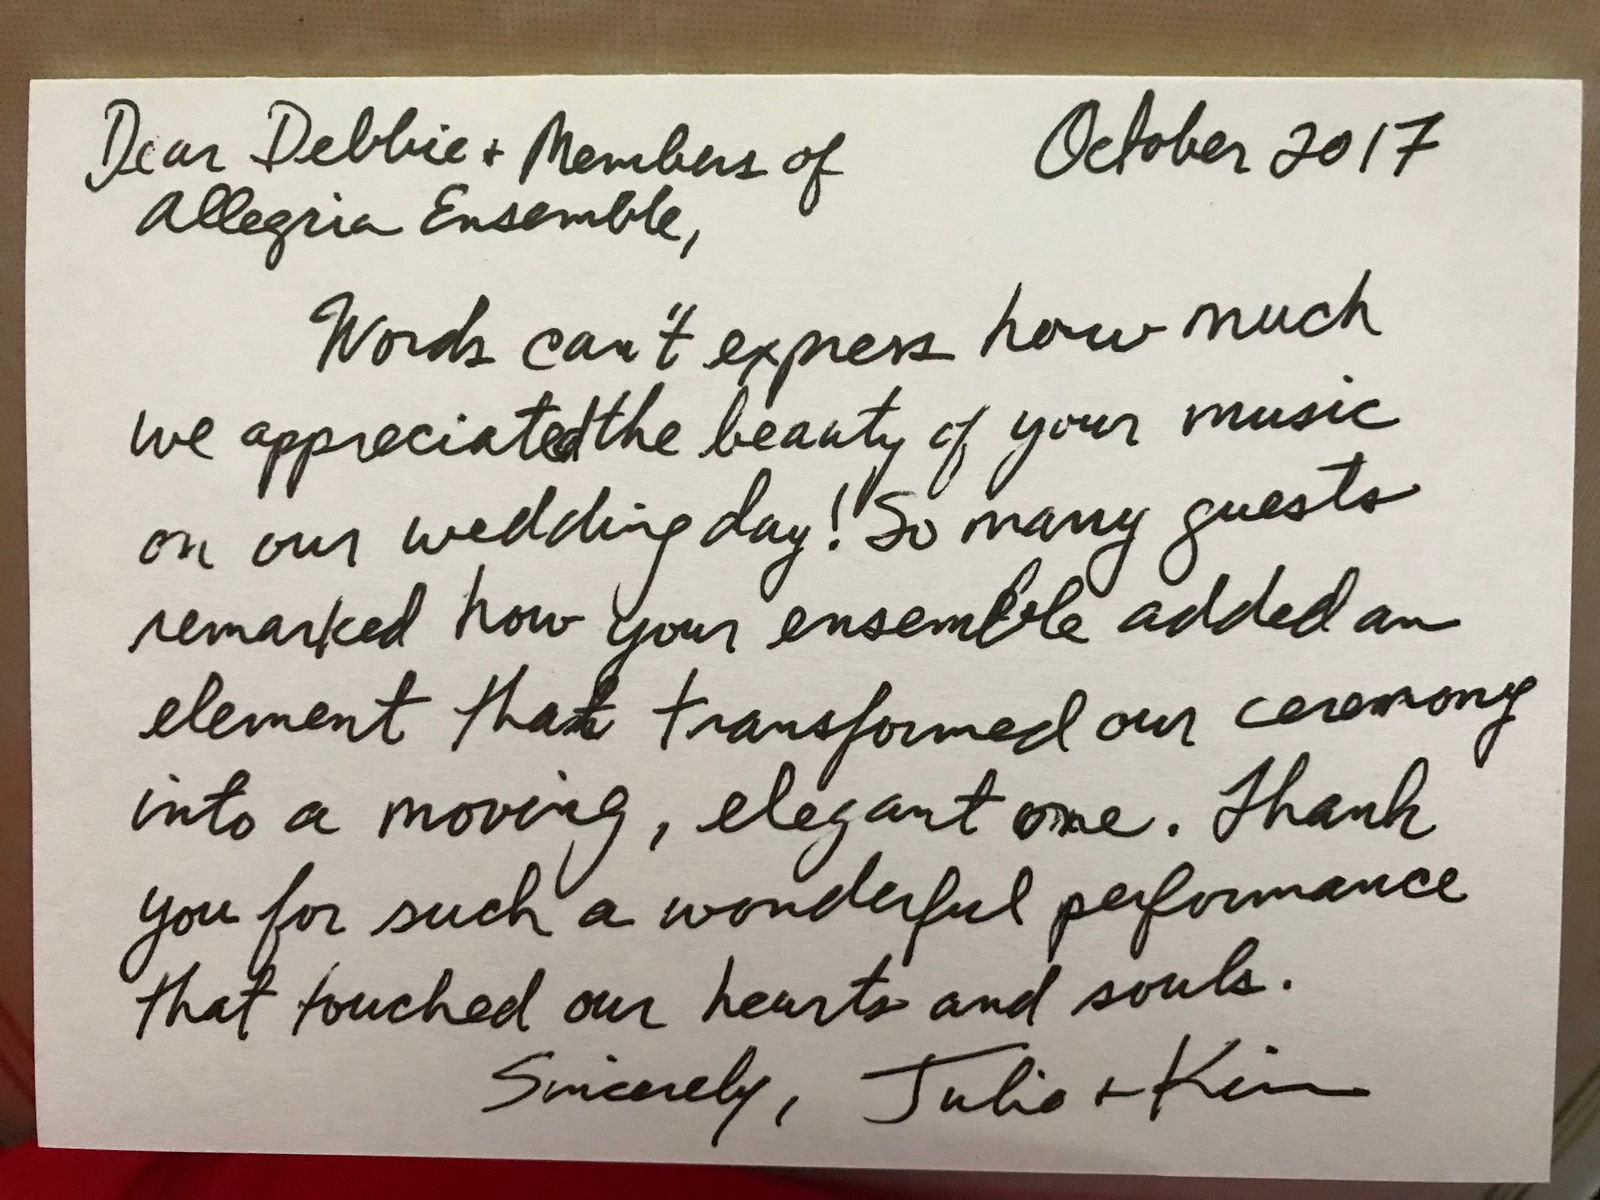 Dear Debbie + Members of
October 2017
Allegria Ensemble,
Words can't express how much
we appreciated the beauty of your music
on our wedding day! So many guests
remarked how your ensemble added an
element that transformed our ceremony
into a moving, elegant one. Thank
you for such a wonderful performance
that touched our hearts and souls.
Sincerely, Julio + Kim